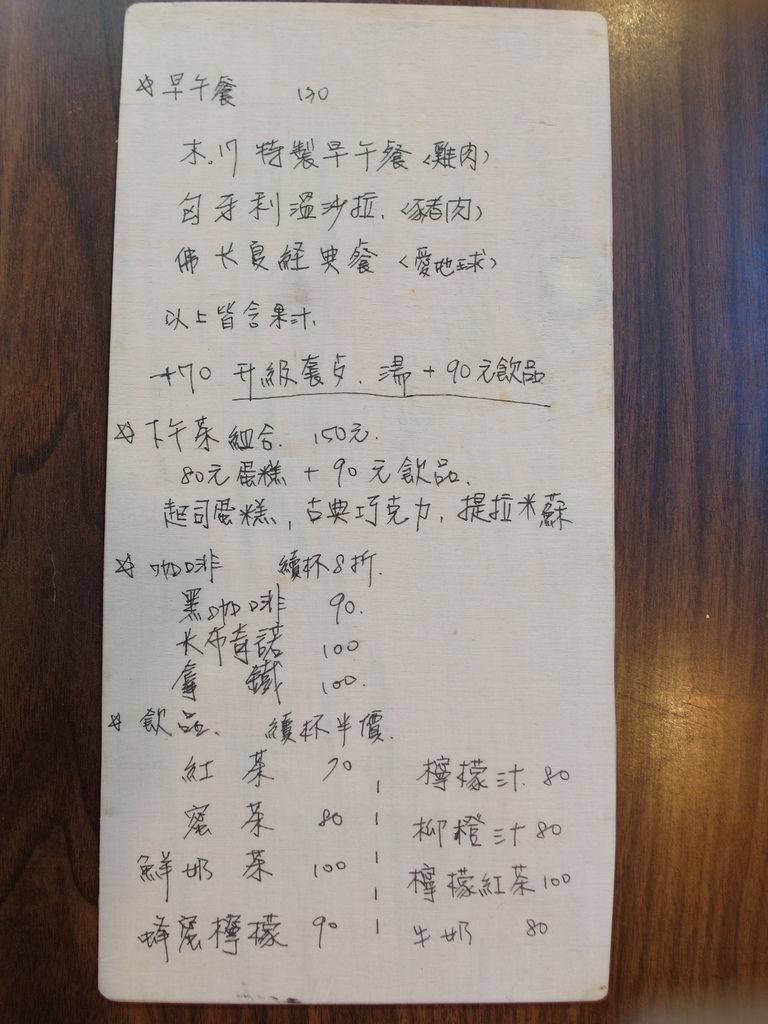 ☆早午餐 130
木.川 特製早午餐〈雞肉〉
匈牙利溫沙拉.〈豬肉〉
佛卡夏経典餐〈愛地球〉
以上皆含果汁.
+70 升級套歺.湯+90元飲品
☆下午茶組合. 150元.
80元蛋糕+90元飲品.
起司蛋糕,古典巧克力,提拉米蘇
☆咖啡 續杯8折.
黑咖啡 90.
卡布奇諾 100
拿鐵 100.
☆飲品. 續杯半價.
紅茶 70 檸檬汁 80
蜜茶 80 柳橙汁 80
鮮奶茶 100 檸檬紅茶 100
蜂蜜檸檬 90 牛奶 80